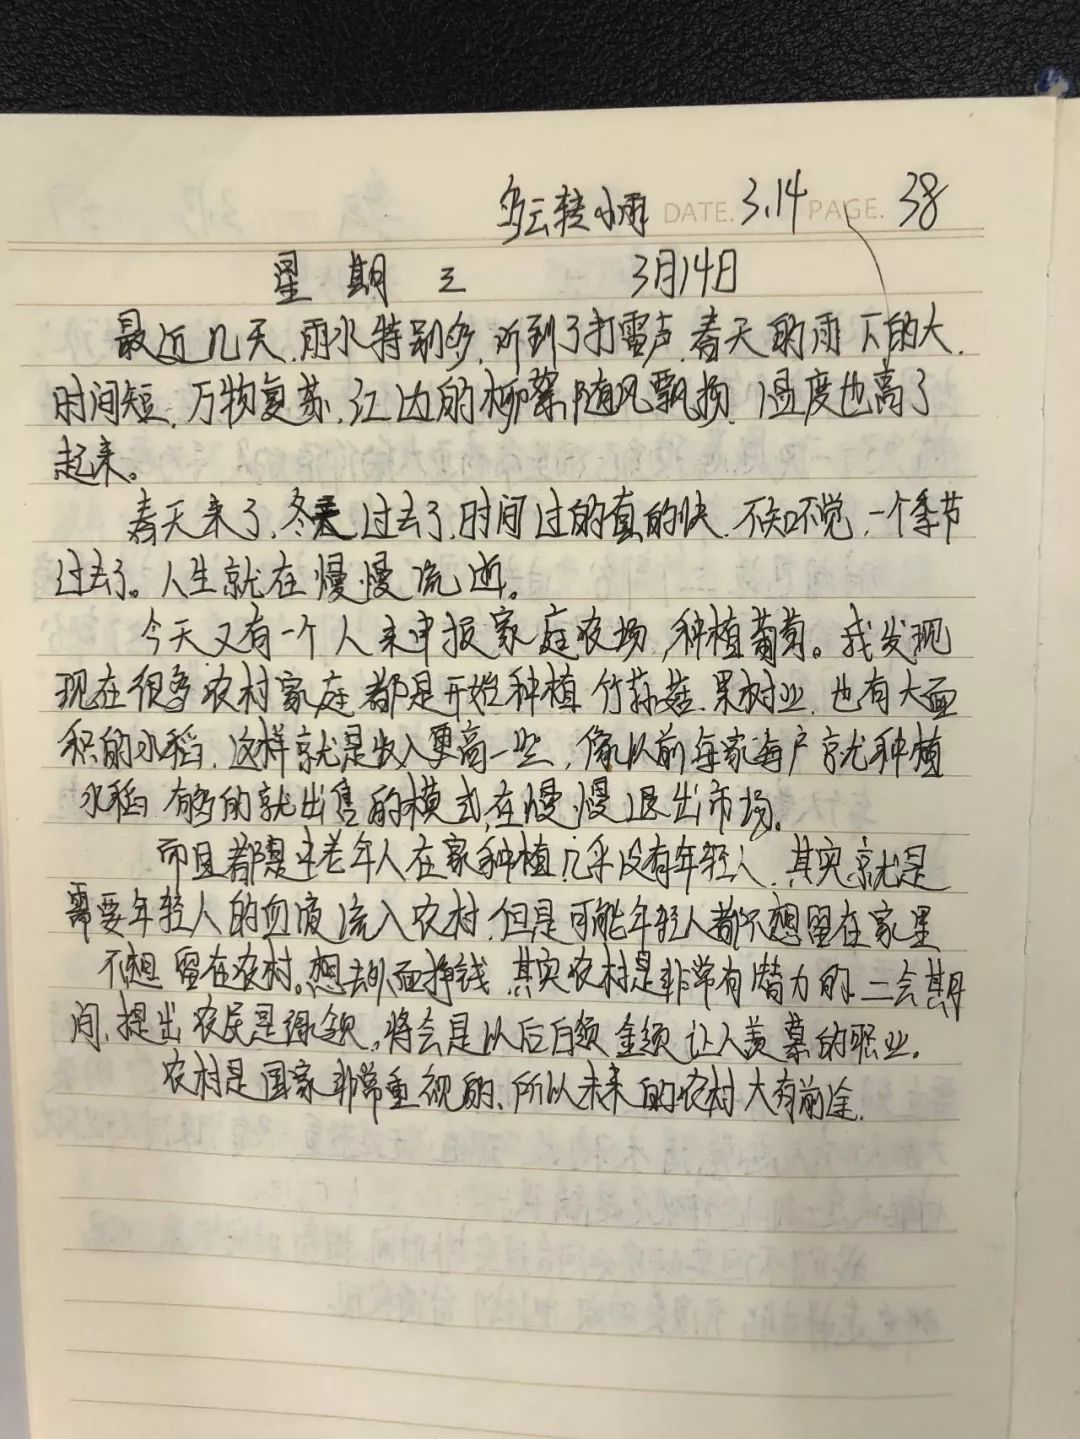 乌云转小雨 DATE. 3.14 PAGE. 38
星期三 3月14日
最近几天,雨水特别多,听到了打雷声,春天的雨下的大,
时间短,万物复苏,江边的柳絮随风飘扬,温度也高了
起来。
春天来了,冬天过去了,时间过的真的快,不知不觉,一个季节
过去了。人生就在慢慢流逝。
今天又有一个人来申报家庭农场,种植葡萄。我发现
现在很多农村家庭都是开始种植竹荪菇,果树业,也有大面
积的水稻,这样就是收入更高一些,像以前每家每户就种植
水稻有多的就出售的模式,在慢慢退出市场。
而且都是中老年人在家种植几乎没有年轻人,其实就是
需要年轻人的血液流入农村,但是可能年轻人都不想留在家里
不想留在农村。想去外面挣钱,其实农村是非常有潜力的,二会期
间,提出农民是绿领,将会是以后白领金领让人羡慕的职业。
农村是国家非常重视的,所以未来的农村大有前途.